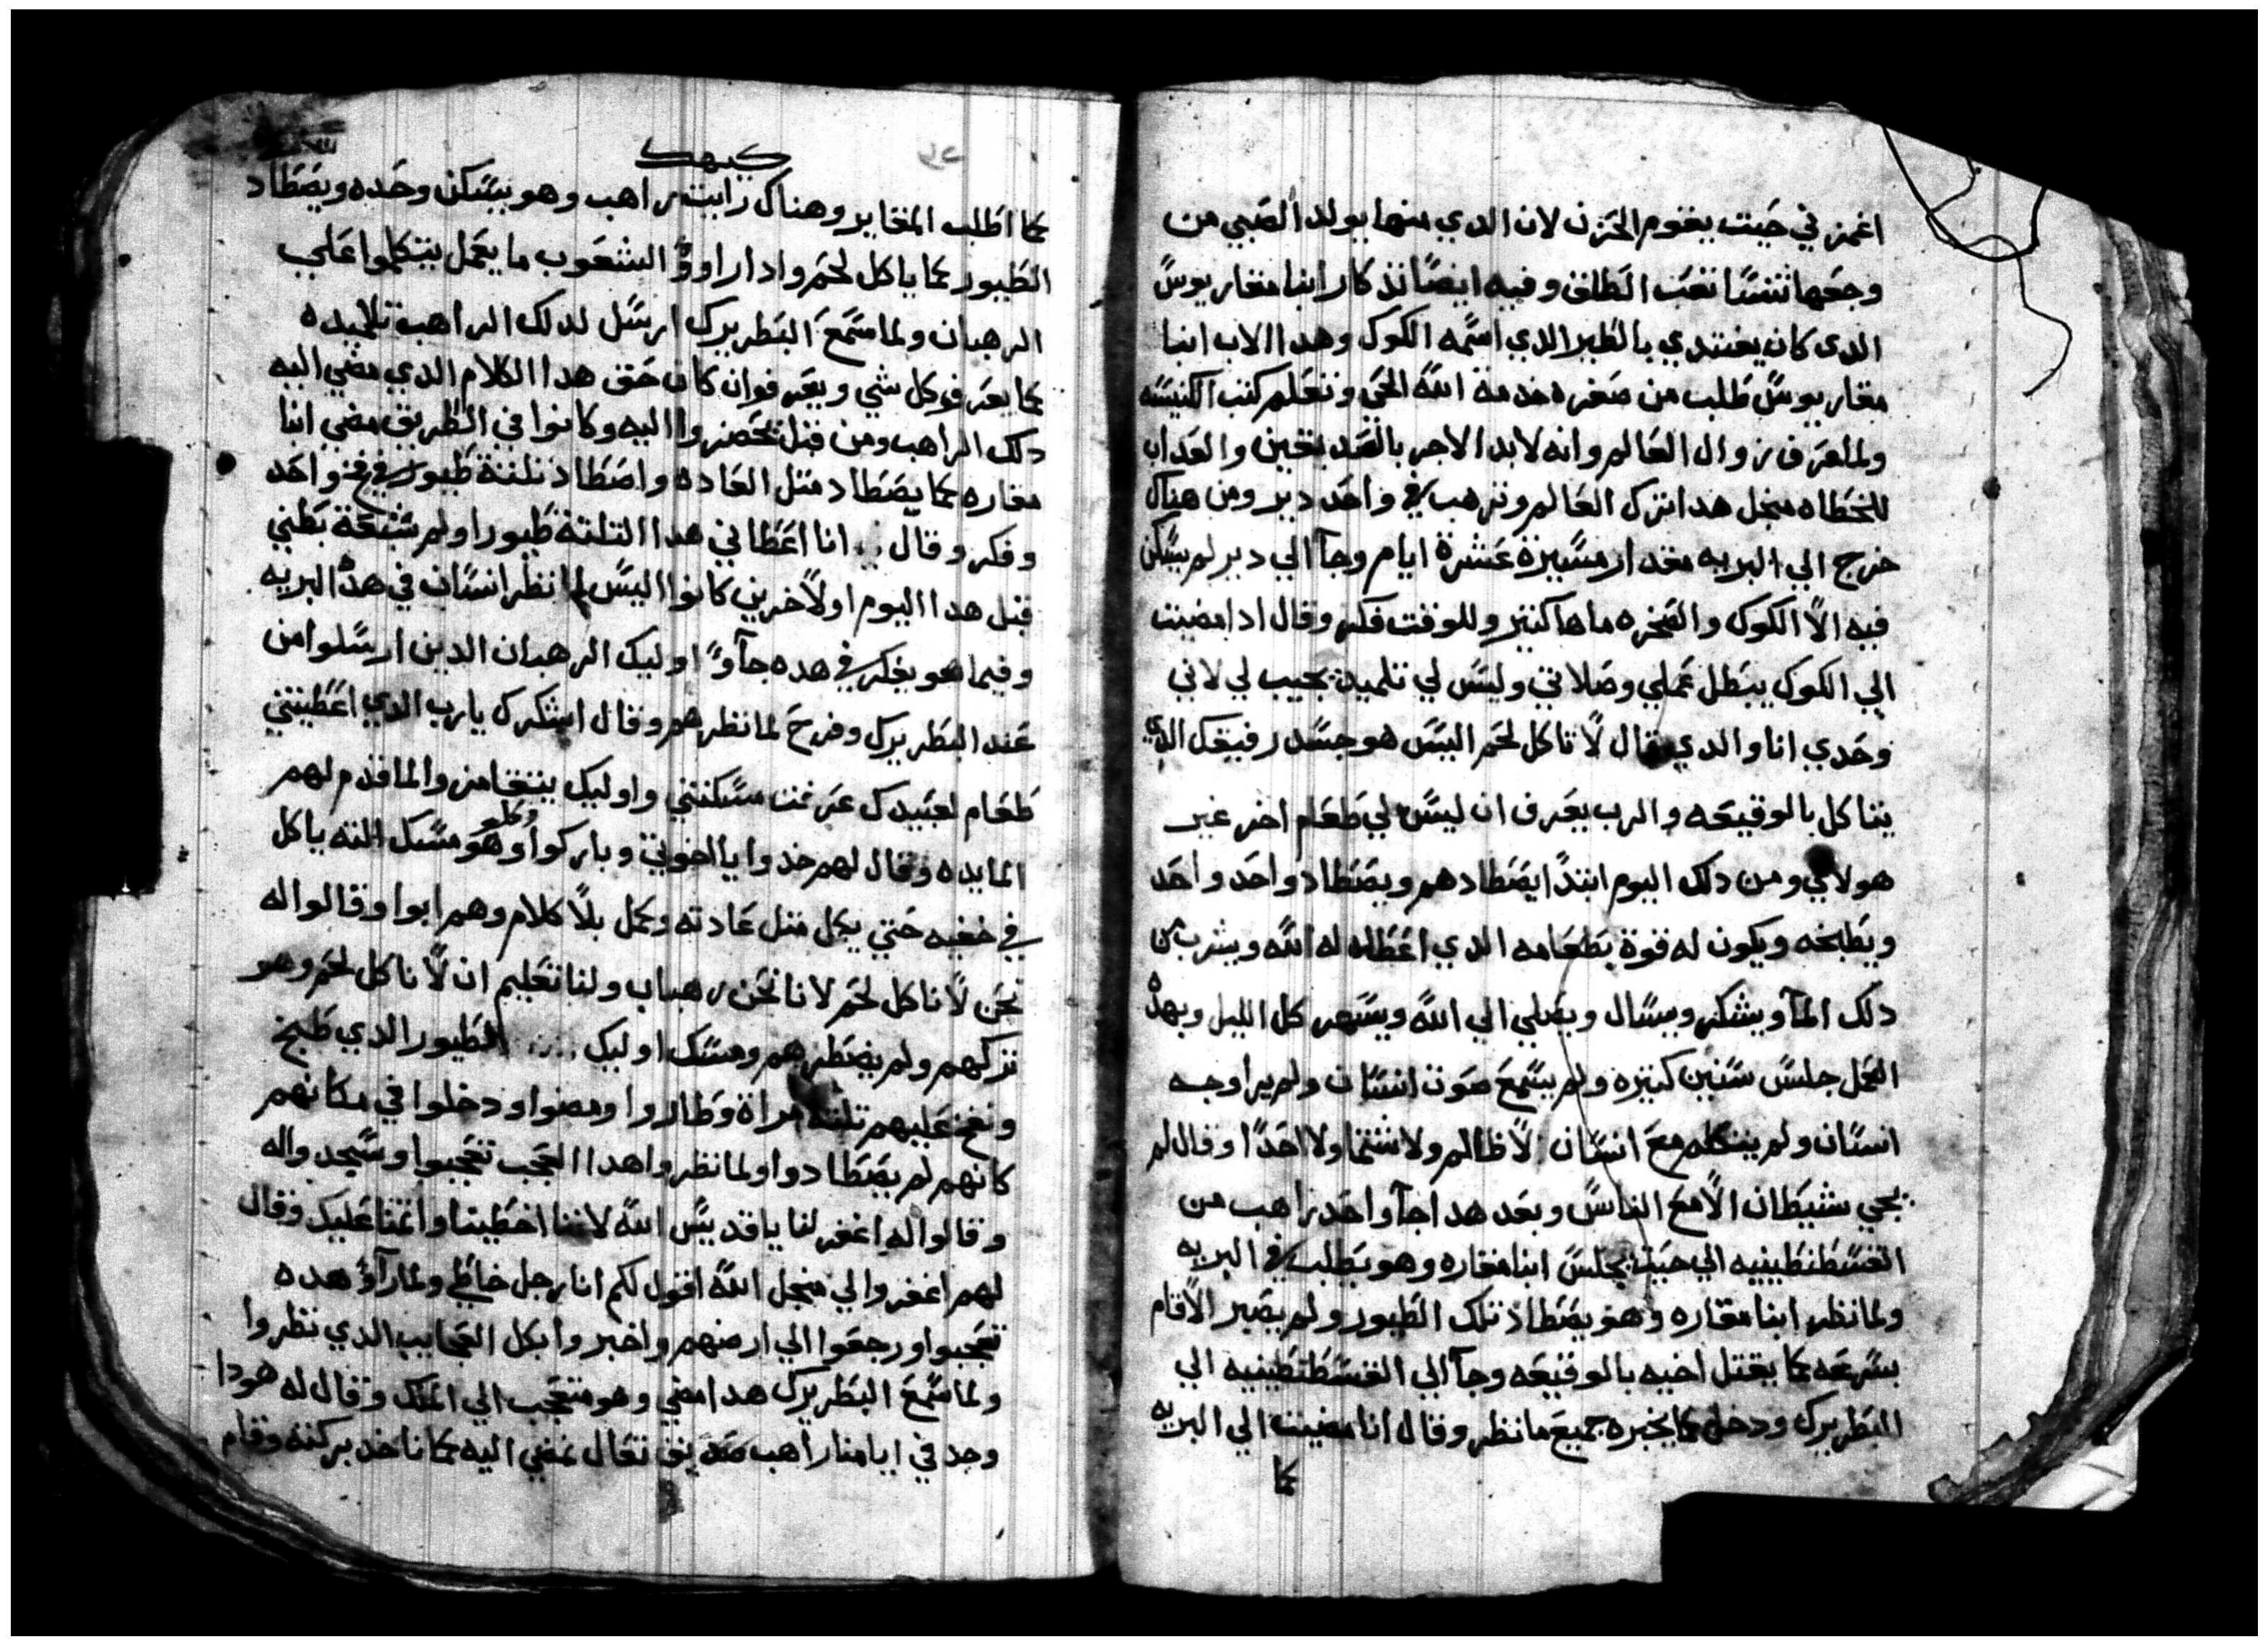 اغمز في حيت يقوم الحزن لان الدي منها يولد الصبي من
وجعها تنسا تعب الطلق وفيه ايضا تدكار ابنا مقاريوس
الدي كان يغتدي بالطير الدي اسمه الكوك وهدا الاب ابنا
مقاريوس طلب من صغره خدمة الله الحي وتعلم كتب الكنيسه
ولما عرف زوال العالم وانه لابد الاجر بالصديقين والعداب
للخطاه منجل هدا ترك العالم وترهب في واحد دير ومن هناك
خرج الي البريه مقدار مسيرة عشرة ايام وجا الي دير لم يسكن
فيه الا الكوك والصخره ماها كتير وللوقت فكر وقال ادا مضيت
الي الكوك يبطل عملي وصلاتي وليس لي تلميد يجيب لي لاني
وحدي انا والدي قال لا تاكل لحم اليس هو جسد رفيقك الدي
يتاكل بالوقيعه والرب يعرف ان ليس لي طعام اخر غير
هولاي ومن دلك اليوم ابتدا يصطادهم ويصطاد واحد واحد
ويطبخه ويكون له قوة بطعامه الدي اعطاه له الله ويشرب من
دلك الما ويشكر ويسال ويصلي الي الله ويسهر كل الليل وبهدا
العمل جلس سنين كتيره ولم يسمع صوت انسان ولم يرا وجه
انسان ولم يتكلم مع انسان لا ظالم ولا شتما ولا احدا وقال لم
يجي شيطان الا مع الناس وبعد هدا جا واحد راهب من
القسطنطينيه الي حيت يجلس ابنا مقاره وهو يطلب في البريه
ولما نظر ابنا مقاره وهو يصطاد تلك الطيور ولم يصبر الا قام
بسرعه كما يقتل اخيه بالوقيعه وجا الي القسطنطينيه الي
البطريرك ودخل كما يخبره جميع ما نظر وقال انا مضيت الي البريه
كما
كيهك
كما اطلب المغاير وهناك رايت راهب وهو يسكن وحده ويصطاد
الطيور كما ياكل لحم وادا راوو الشعوب ما يعمل يتكلموا علي
الرهبان ولما سمع البطريرك ارسل لدلك الراهب تلاميده
كما يعرفو كل شي ويعرفوان كان حق هدا الكلام الدي مضي اليه
دلك الراهب ومن قبل يحضروا اليه وكانوا في الطريق مضي ابنا
مقاره كما يصطاد متل العاده واصطاد تلتة طيور في فخ واحد
وفكر وقال انا اعطاني هدا التلتة طيور اولم شبعة بطني
قبل هدا اليوم اولاخرين كانوا اليس لما نظر انسان في هده البريه
وفيما هو يفكر في هده جاوا اوليك الرهبان الدين ارسلوا من
عند البطريرك وفرح لما نظرهم وقال اشكرك يارب الدي اعطيتني
طعام لعبيدك عرفت مسكنتي واوليك يتقامزوا لما قدم لهم
المايده وقال لهم خدوا يا اخوتي وباركوا وكلو وهو مسك التته ياكل
في خفيه حتي يكل متل عادته وعمل بلا كلام وهم ابوا وقالوا له
نحن لا ناكل لحم لانا نحن رهبان ولنا تعليم ان لا ناكل لحم وهو
تركهم ولم يضطرهم ومسك اوليك الطيور الدي طبخ
ونفخ عليهم تلته مراة وطاروا ومضوا ودخلوا في مكانهم
كانهم لم يصطادوا ولما نظروا هدا العجب تعجبوا وسجدوا له
وقالوا له اغفر لنا يا قديس الله لاننا اخطينا واتمنا عليك وقال
لهم اغفروا لي منجل الله اقول لكم انا رجل خاطي ولما راوا هده
تعجبوا ورجعوا الي ارضهم واخبروا بكل العجايب الدي نظروا
ولما سمع البطريرك هدا مضي وهو متعجب الي الملك وقال له هودا
وجد في ايامنا راهب صديق تعال نمضي اليه كما ناخد بركته وقام